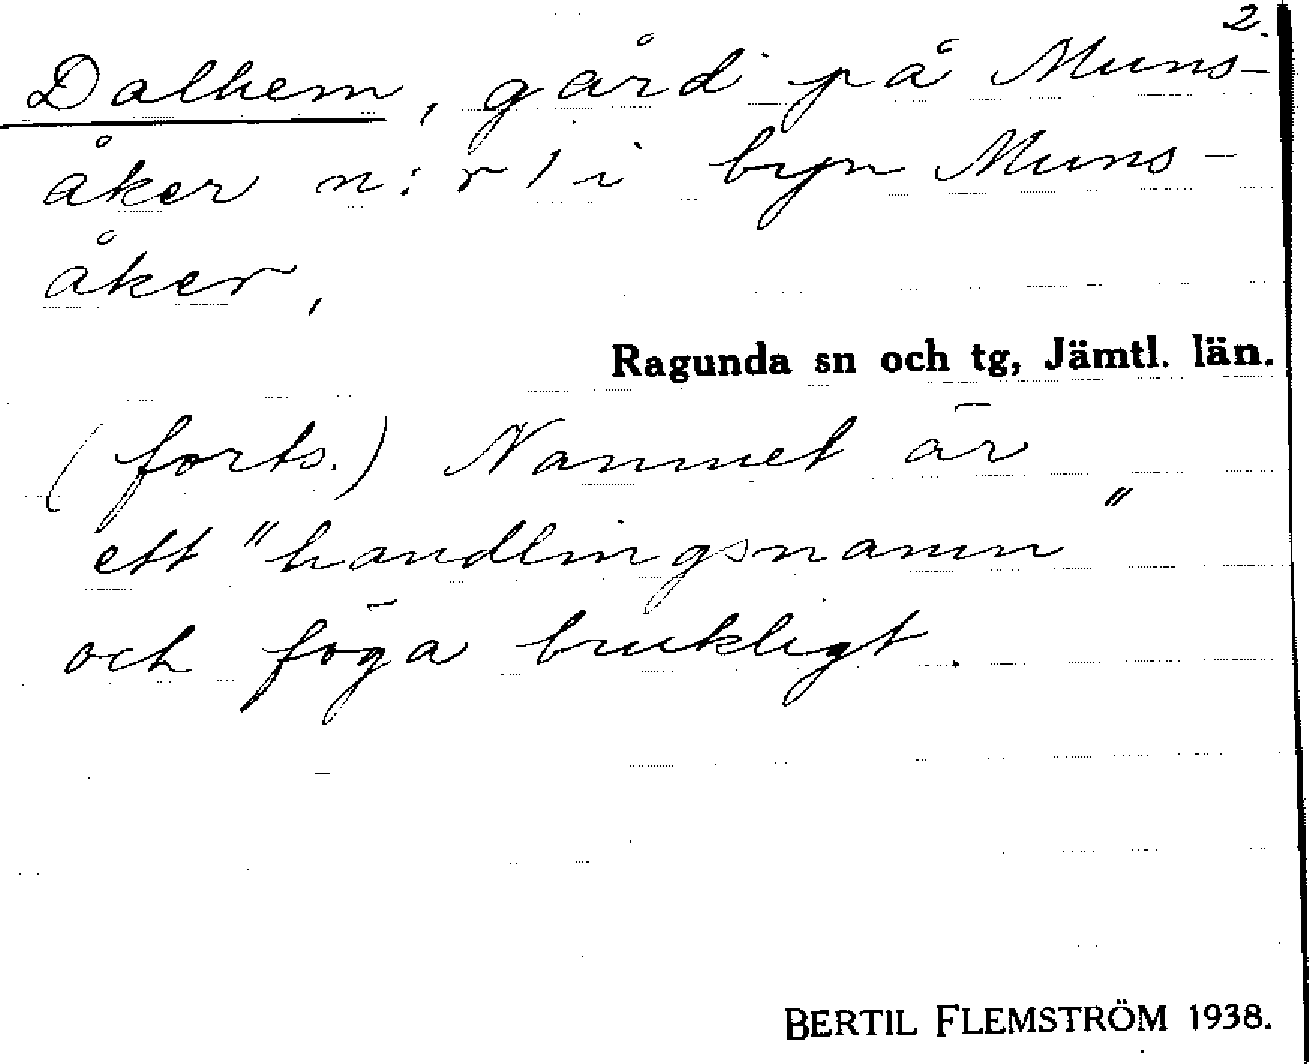 2.
Dalhem, gård på Muns-
åker n:r 1 i byn Muns-
åker,
Ragunda sn och tg, Jämtl. län.
(forts.) Namnet är
ett "handlingsnamn"
och föga brukligt.
BERTIL FLEMSTRÖM 1938.